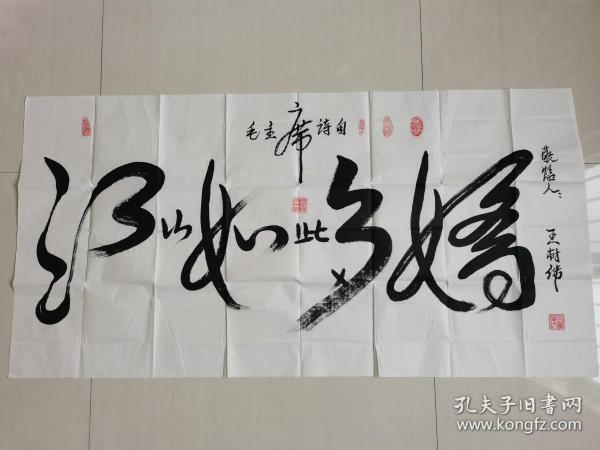 毛主席诗句
江山如此多娇
王树伟
孔夫子旧书网
www.kongfz.com